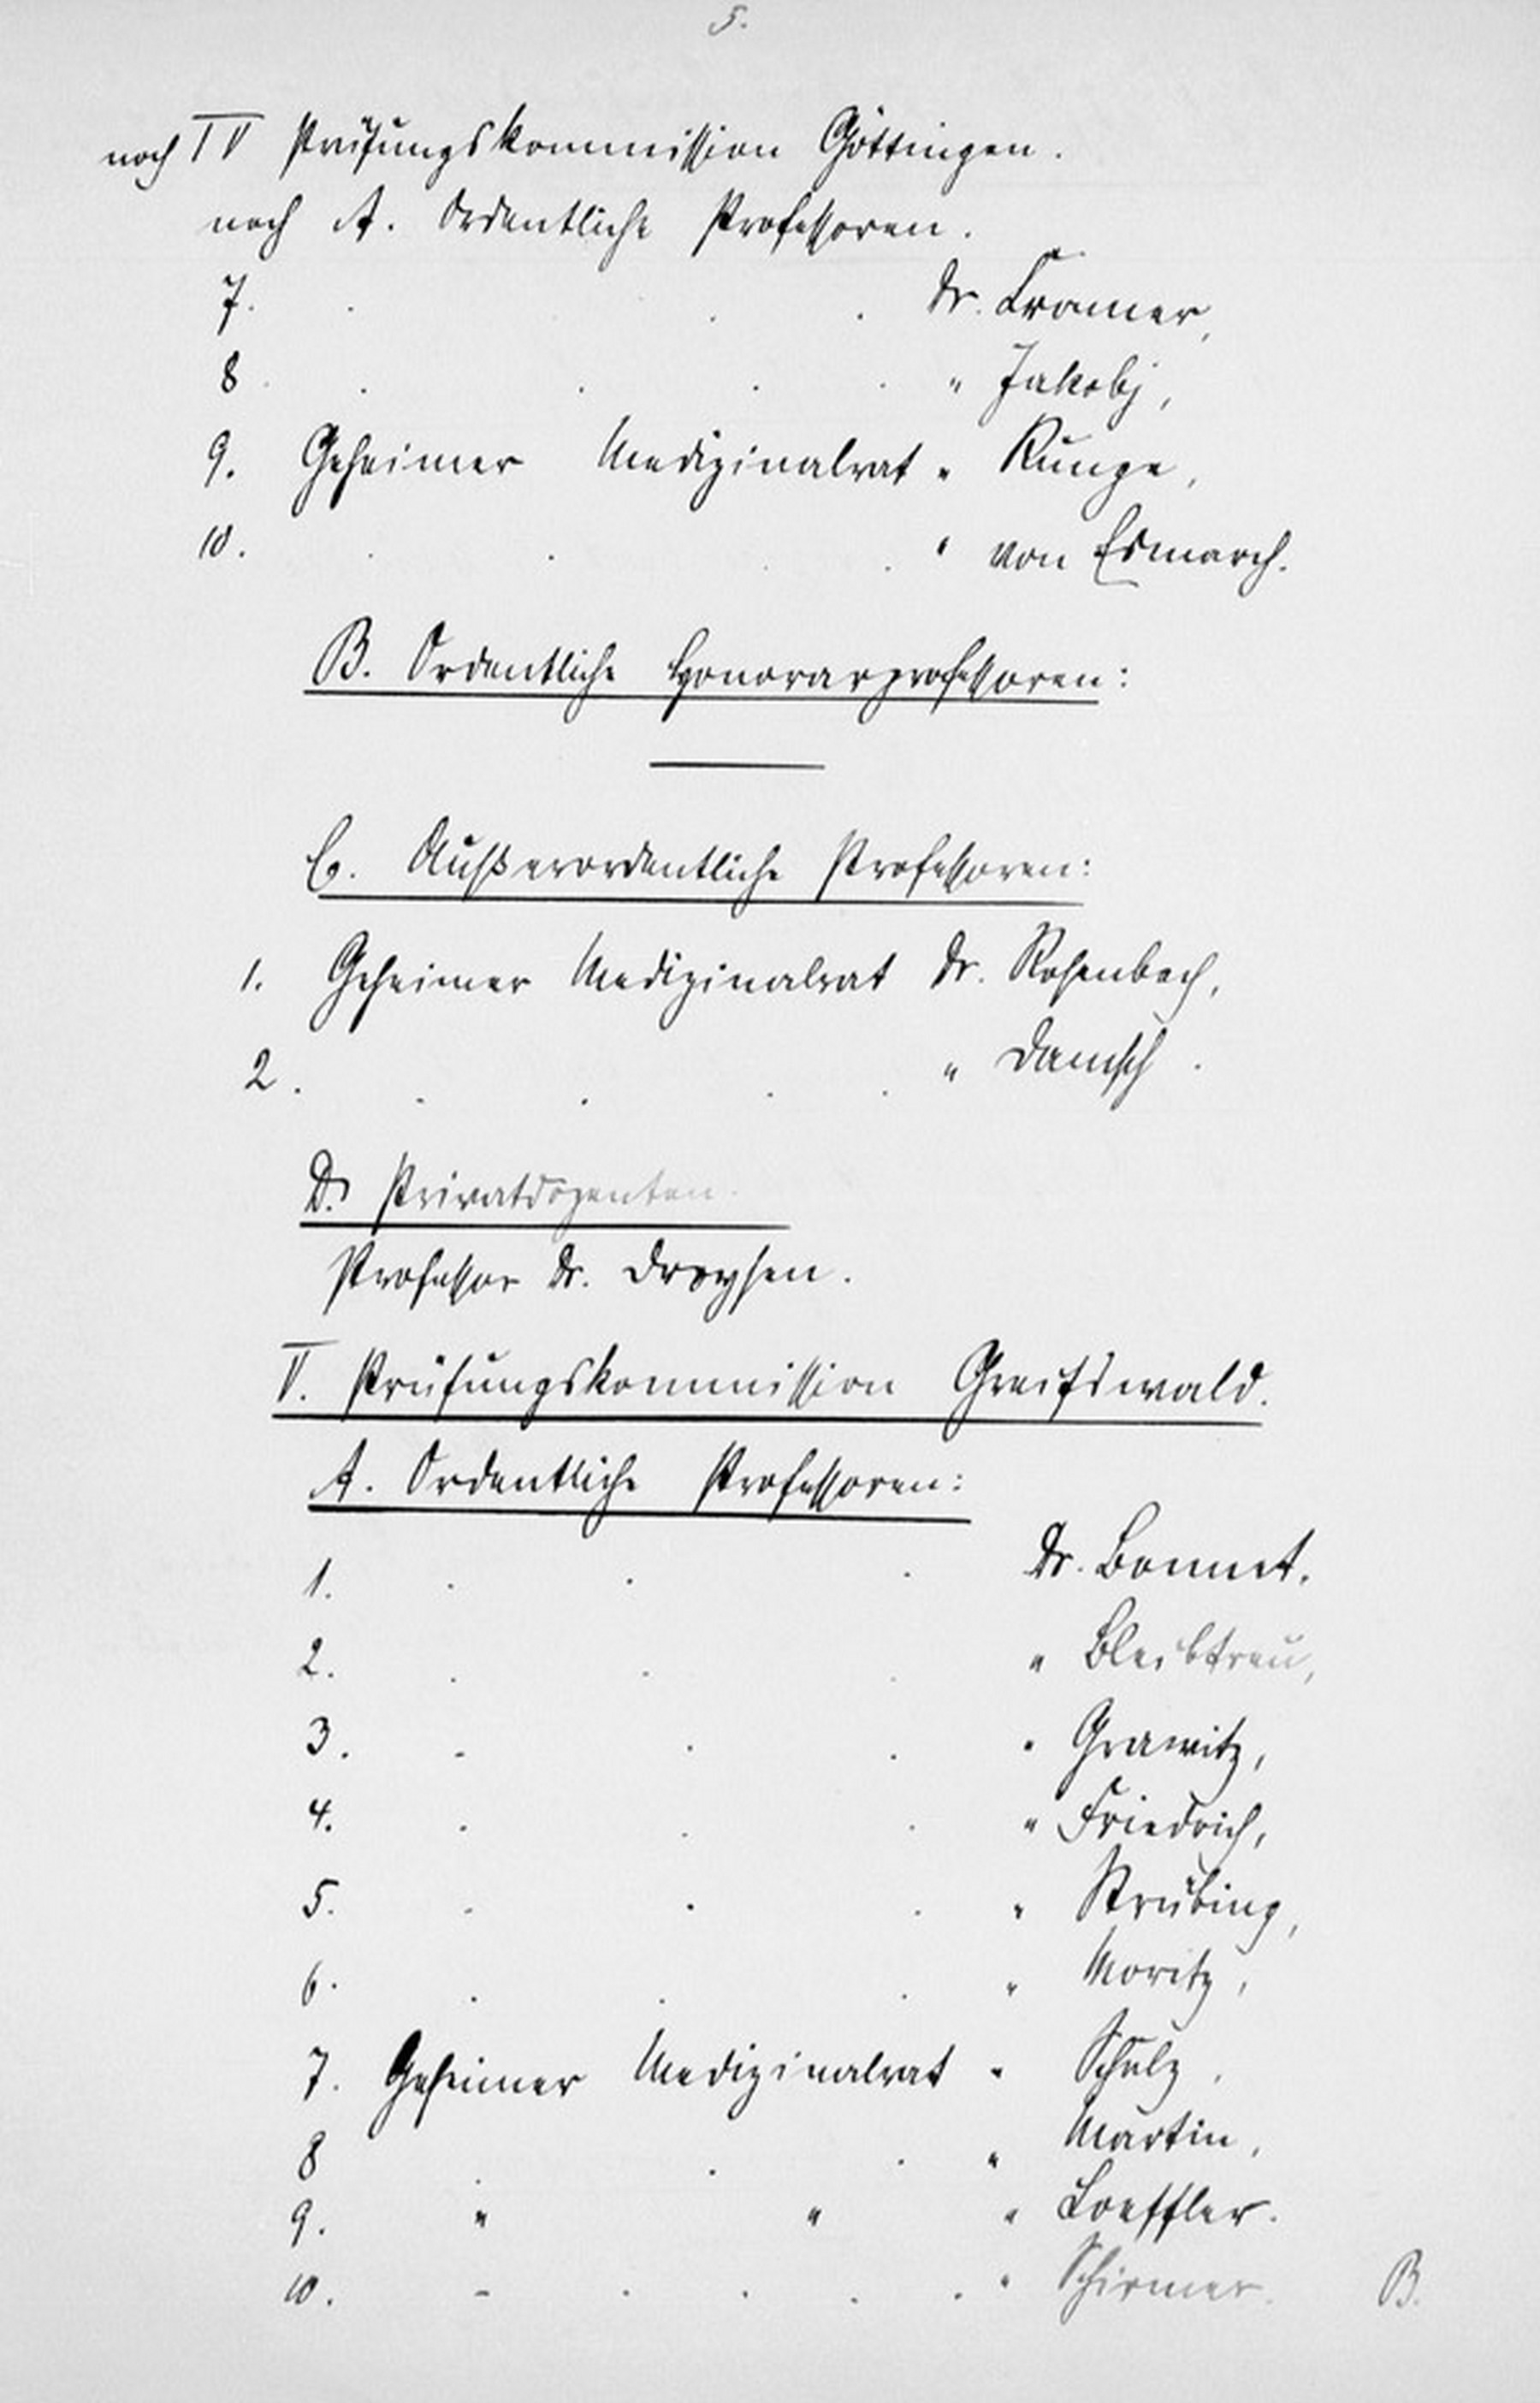 5.
noch IV Prüfungskommission Göttingen.
noch A. Ordentliche Professoren.
7. . . . Dr. Cramer,
8. . . . . " Jakobj,
9. Geheimer Medizinalrat " Runge,
10. . . . . " von Esmarch.
B. Ordentliche Honorarprofessoren:
C. Außerordentliche Professoren:
1. Geheimer Medizinalrat Dr. Rosenbach,
2. . . . . " Damsch.
D. Privatdozenten.
Professor Dr. Droysen.
V. Prüfungskommission Greifswald.
A. Ordentliche Professoren:
1. . . . Dr. Bonnet.
2. . . . " Bleibtreu,
3. . . . " Grawitz,
4. . . . " Friedrich,
5. . . . " Strübing,
6. . . . " Moritz,
7. Geheimer Medizinalrat " Schulz,
8 . . . " Martin,
9. " " " Loeffler.
10. - . . . . " Schirmer.
B.